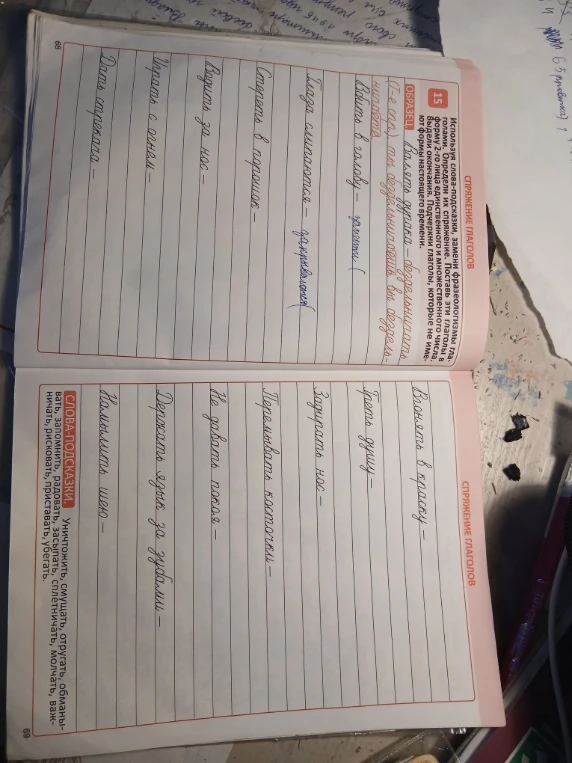 СПРЯЖЕНИЕ ГЛАГОЛОВ
15 Используя слова-подсказки, замени фразеологизмы гла-
голами. Определи их спряжение. Поставь эти глаголы в
форму 2-го лица единственного и множественного числа.
Выдели окончания. Подчеркни глаголы, которые не име-
ют формы настоящего времени.
ОБРАЗЕЦ Валять дурака – бездельничать
(I-е спр.), ты бездельничаешь, вы бездель-
ничаете.
Вбить в голову –
Глаза слипаются – закрываются(
Стереть в порошок
Водить за нос –
Играть с огнём –
Дать стрекача –
68
СПРЯЖЕНИЕ ГЛАГОЛОВ
Вгонять в краску –
Греть душу –
Задирать нос –
Перемывать косточки –
Не давать покоя –
Держать язык за зубами –
Намылить шею –
СЛОВА-ПОДСКАЗКИ. Уничтожить, смущать, отругать, обманы-
вать, запомнить, радовать, засыпать, сплетничать, молчать, важ-
ничать, рисковать, приставать, убегать.
69